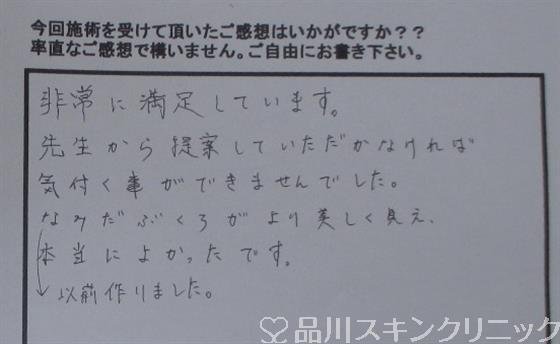 今回施術を受けて頂いたご感想はいかがですか？？
率直なご感想で構いません。ご自由にお書き下さい。
非常に満足しています。
先生から提案していただかなければ
気付く事ができませんでした。
なみだぶくろがより美しく見え、
本当によかったです。
↓以前作りました。
品川スキンクリニック